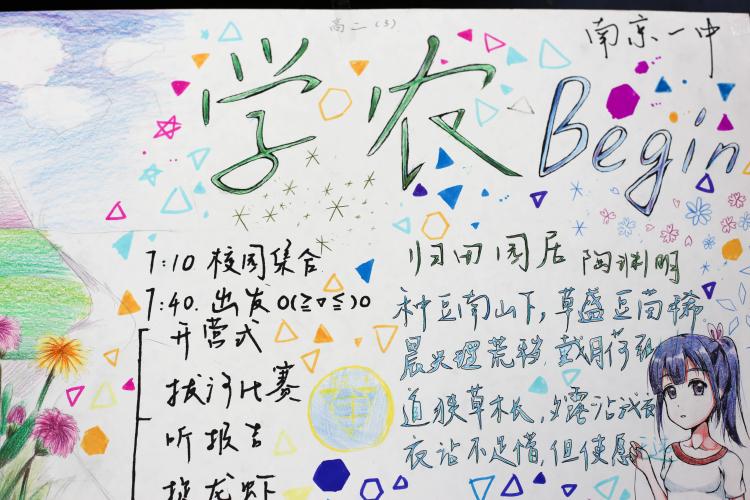 高二(3)
南京一中
学农 Begin
7:10 校园集合
7:40. 出发 O(≧▽≦)O
开营式
拔河比赛
听报告
钓龙虾
归田园居 陶渊明
种豆南山下, 草盛豆苗稀
晨兴理荒秽, 戴月荷
道狭草木长, 夕露沾我衣
衣沾不足惜, 但使愿